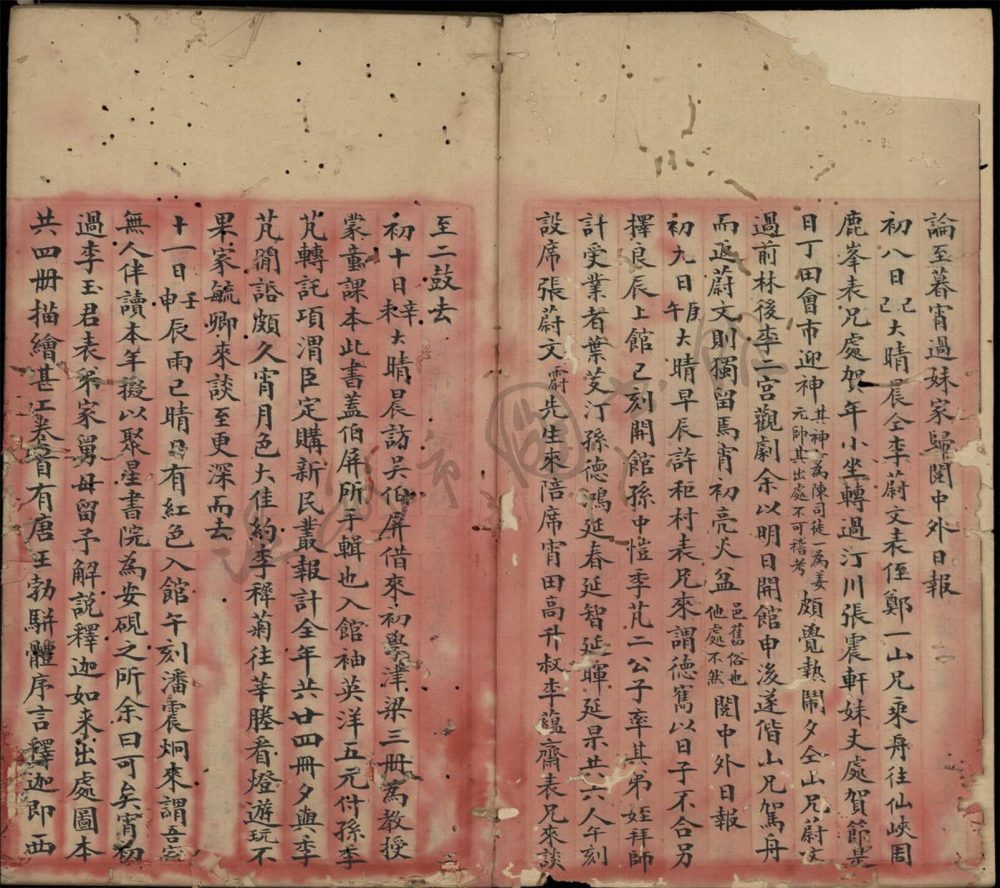 論至暮宵過妹家歸閱中外日報
初八日己巳大晴晨仝李蔚文表侄鄭一山兄乘舟往仙峽周
鹿峯表兄處賀年小坐轉過汀川張震軒妹丈處賀節是
日丁田會市迎神其神一為陳司徒一為姜元帥其出處不可稽考頗覺熱鬧夕仝山兄蔚文
過前林後李二宮觀劇余以明日開館申後遂偕山兄駕舟
而返蔚文則獨留焉宵初亮火盆邑舊俗也他處不然閱中外日報
初九日庚午大晴早辰許和村表兄來謂德雋以日子不合另
擇良辰上館巳刻開館孫中愷季芃二公子率其弟姪拜師
計受業者葉芰汀孫德鴻延春延智延暉延杲共六人午刻
設席張蔚文霨先生來陪席宵田高升叔李蘊齋表兄來談
至二鼓去
初十日辛未大晴晨訪吴伯屏借來初學津梁三冊為教授
蒙童課本此書蓋伯屏所手輯也入館袖英洋五元付孫季
芃轉託項渭臣定購新民叢報計全年共廿四冊夕與季
芃閒語頗久宵月色大佳約李穉菊往莘塍看燈遊玩不
果家毓卿來談至更深而去
十一日壬申辰雨已晴日有紅色入館午刻潘震炯來謂吾家
無人伴讀本年擬以聚星書院為安硯之所余曰可矣宵初
過李玉君表弟家舅母留予解說釋迦如来出處圖本
共四冊描繪甚工卷首有唐王勃駢體序言釋迦即西